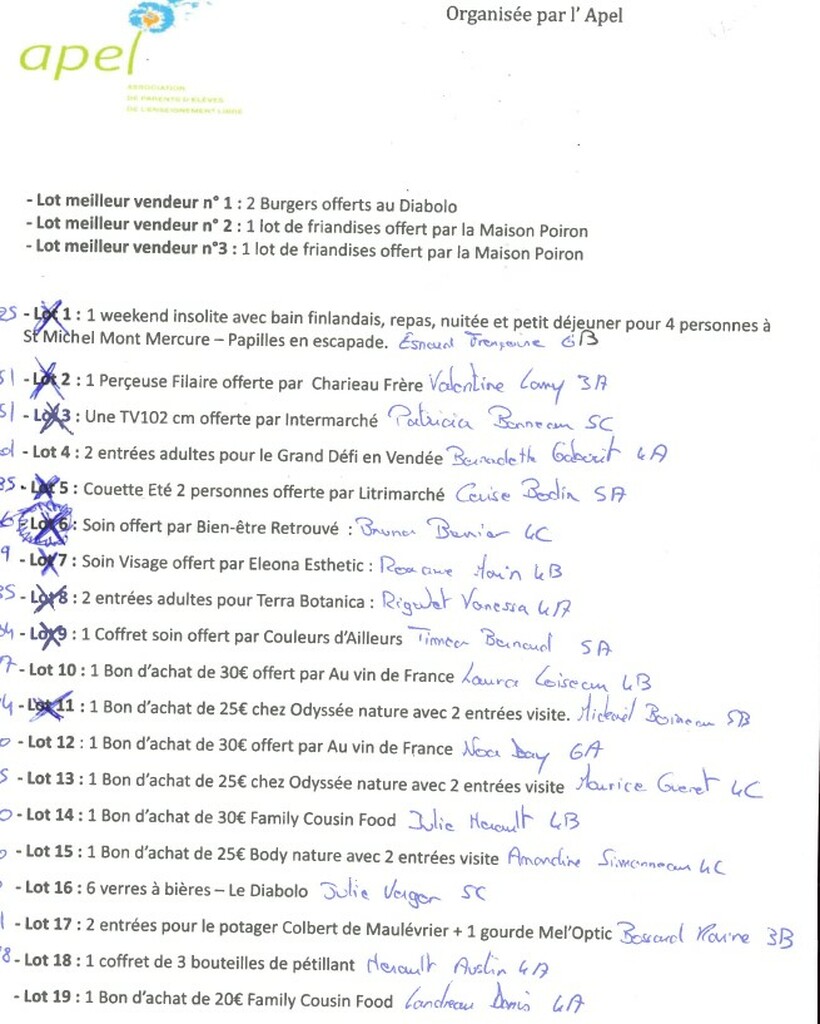 Organisée par l' Apel
apel
ASSOCIATION
DE PARENTS D'ELÈVES
DE L'ENSEIGNEMENT LIBRE
- Lot meilleur vendeur n° 1 : 2 Burgers offerts au Diabolo
- Lot meilleur vendeur n° 2 : 1 lot de friandises offert par la Maison Poiron
- Lot meilleur vendeur n°3 : 1 lot de friandises offert par la Maison Poiron
- Lot 1 : 1 weekend insolite avec bain finlandais, repas, nuitée et petit déjeuner pour 4 personnes à
St Michel Mont Mercure – Papilles en escapade. 6B
- Lot 2 : 1 Perçeuse Filaire offerte par Charieau Frère Valentine Lamy 3A
- Lot 3 : Une TV102 cm offerte par Intermarché Patricia Bonneau 5C
- Lot 4 : 2 entrées adultes pour le Grand Défi en Vendée Bernadette Gaborit 4A
- Lot 5 : Couette Eté 2 personnes offerte par Litrimarché Bodin 5A
- Lot 6 : Soin offert par Bien-être Retrouvé : 4C
- Lot 7 : Soin Visage offert par Eleona Esthetic : Roxane 4B
- Lot 8 : 2 entrées adultes pour Terra Botanica : Vanessa 4A
- Lot 9 : 1 Coffret soin offert par Couleurs d'Ailleurs 5A
- Lot 10 : 1 Bon d'achat de 30€ offert par Au vin de France Laura Loiseau 4B
- Lot 11 : 1 Bon d'achat de 25€ chez Odyssée nature avec 2 entrées visite. 5B
- Lot 12 : 1 Bon d'achat de 30€ offert par Au vin de France 6A
- Lot 13 : 1 Bon d'achat de 25€ chez Odyssée nature avec 2 entrées visite Maurice 4C
- Lot 14 : 1 Bon d'achat de 30€ Family Cousin Food Julie Herault 4B
- Lot 15 : 1 Bon d'achat de 25€ Body nature avec 2 entrées visite Amandine Simonneau 4C
- Lot 16 : 6 verres à bières – Le Diabolo Julie Verger 5C
- Lot 17 : 2 entrées pour le potager Colbert de Maulévrier + 1 gourde Mel'Optic Bossard 3B
- Lot 18 : 1 coffret de 3 bouteilles de pétillant Herault Austin 4A
- Lot 19 : 1 Bon d'achat de 20€ Family Cousin Food Landreau Denis 4A